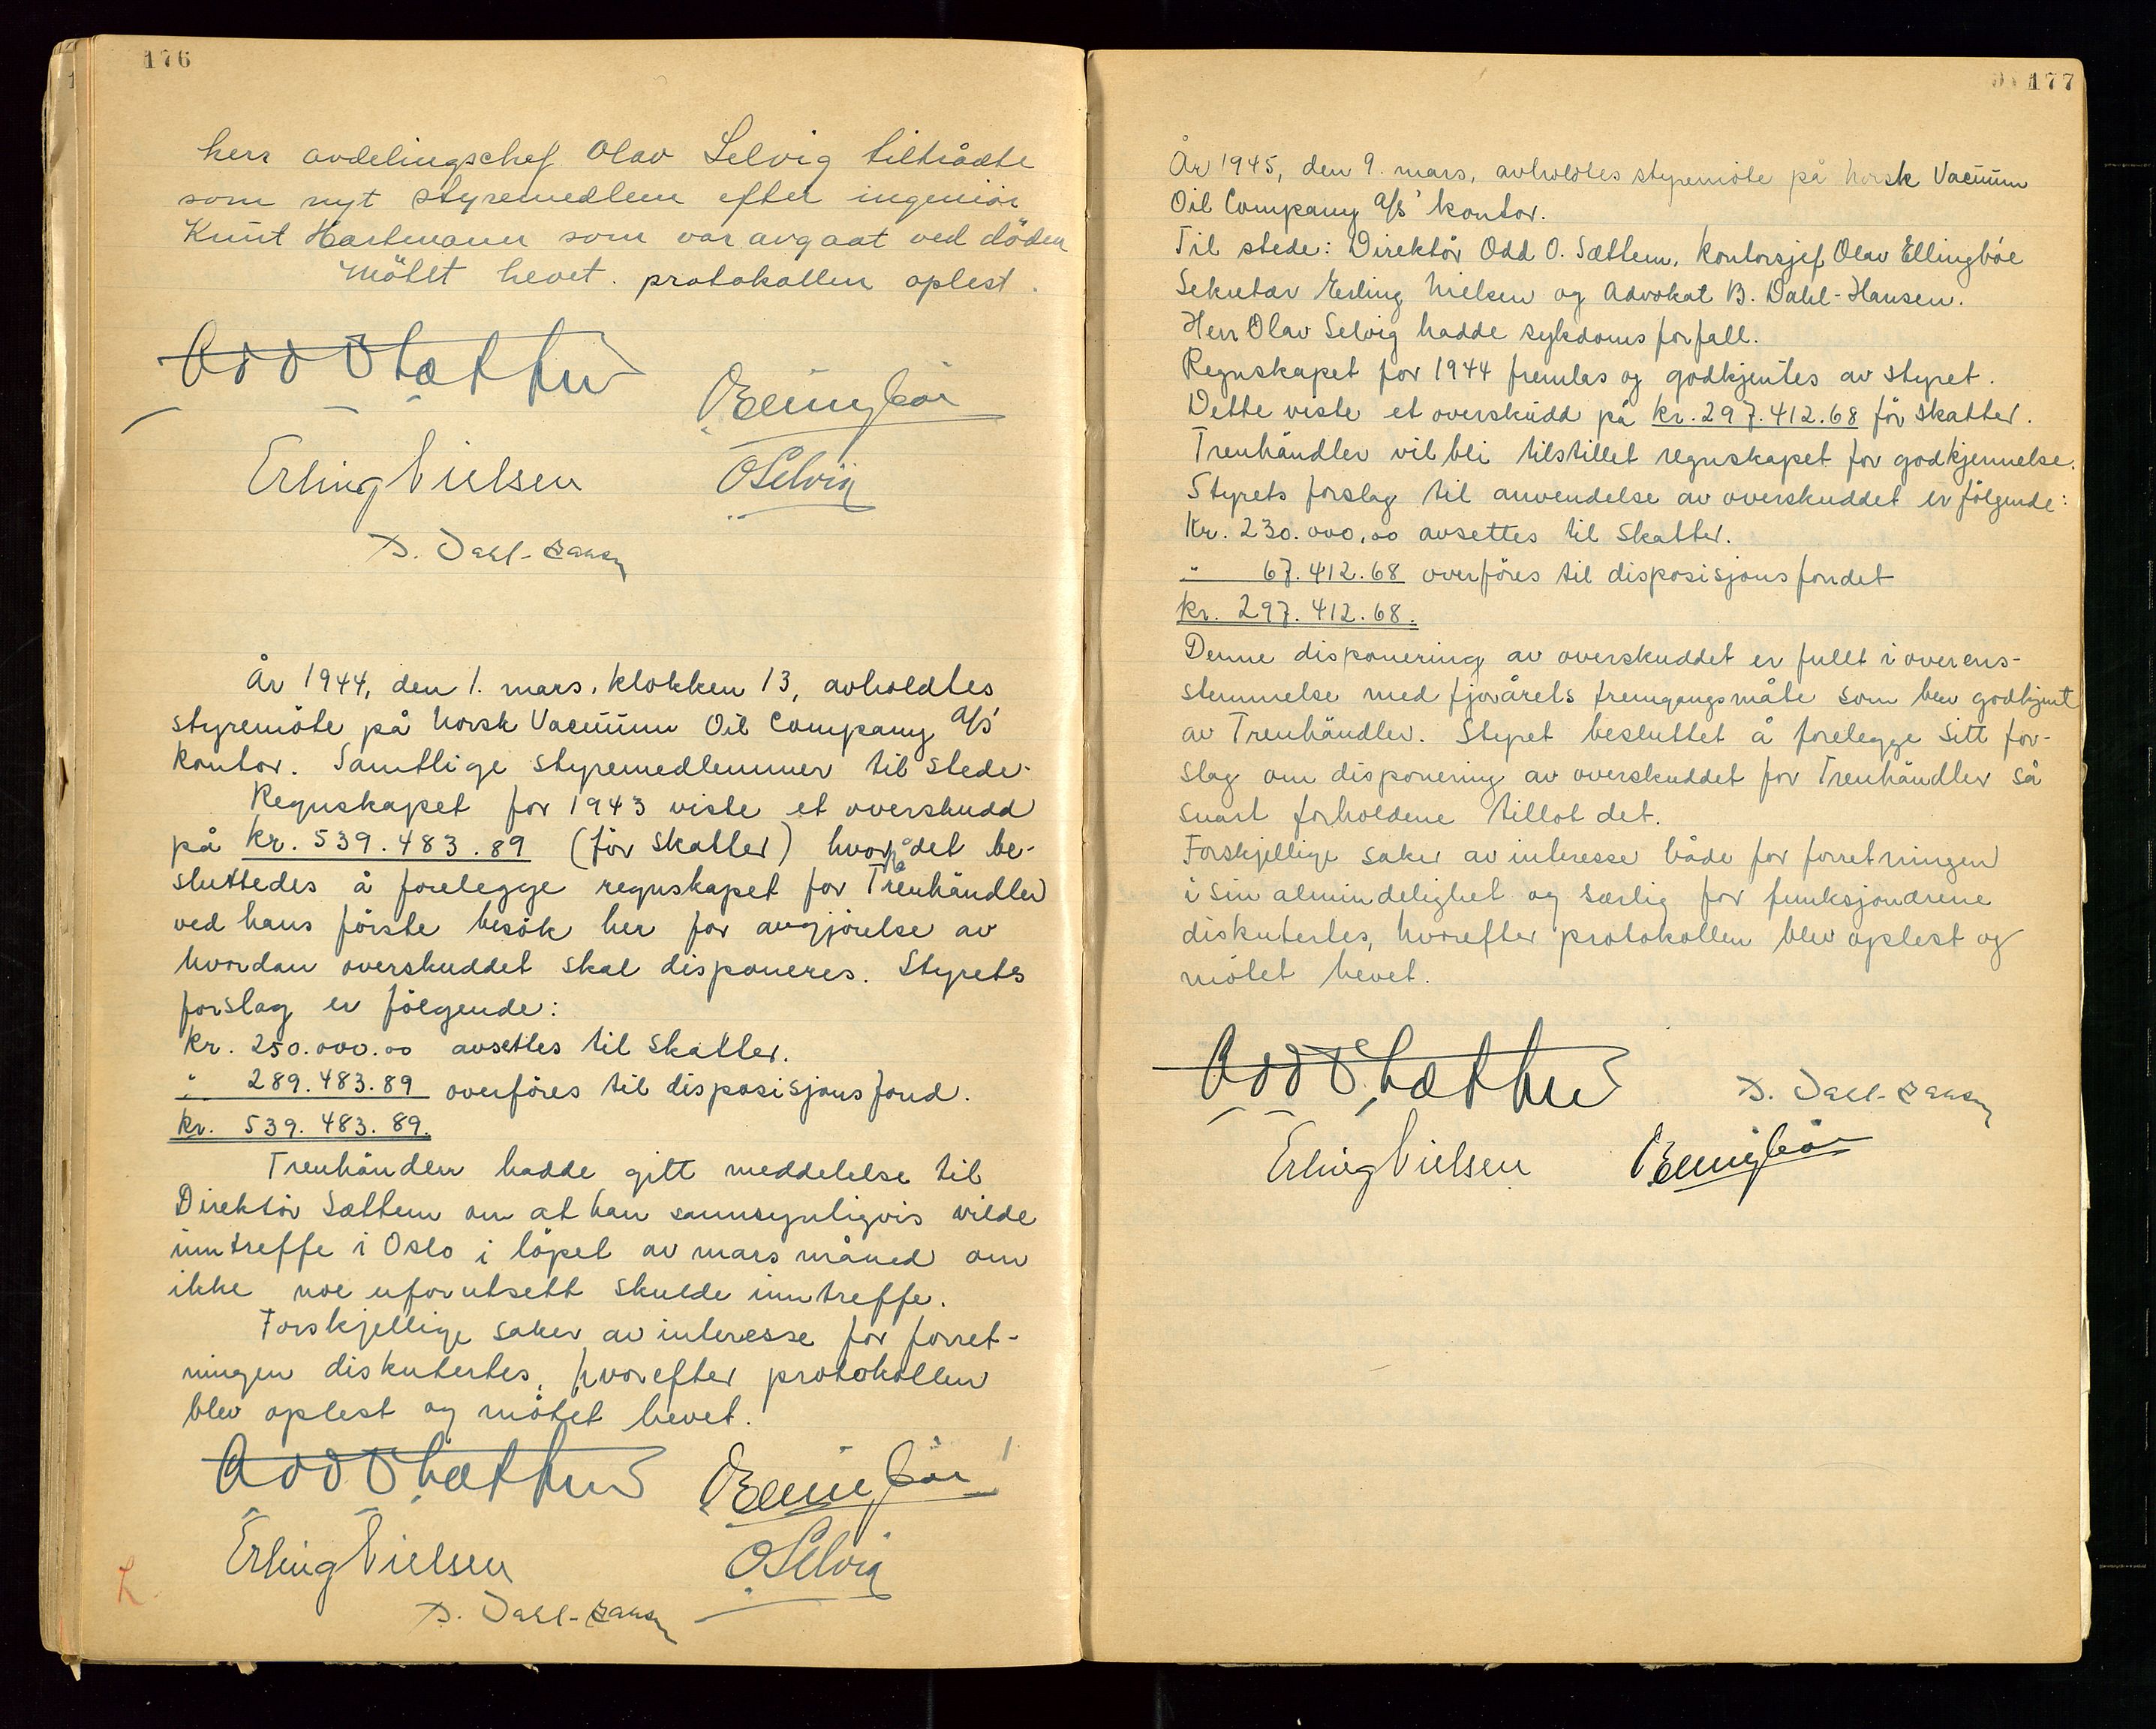 176
herr avdelingschef Olav Selvig tiltrådte
som nyt styremedlem efter ingeniör
Knut Hartmann som var avgaat ved döden
Mötet hevet. protokollen oplest.
Odd O Sættem
OEllingböe
Erling Nielsen
OSelvig
B. Dahl-Hansen
År 1944, den 1. mars, klokken 13, avholdtes
styremöte på Norsk Vacuum Oil Company A/S'
kontor. Samtlige styremedlemmer til stede.
Regnskapet for 1943 viste et overskudd
på kr. 539.483.89 (för skatter) hvorpå det be-
sluttedes å forelegge regnskapet for Treuhändler
ved hans förste besök her for avgjörelse av
hvordan overskuddet skal disponeres. Styrets
forslag er fölgende:
Kr. 250.000.00 avsettes til skatter.
" 289.483.89 overföres til disposisjonsfond.
kr. 539.483.89.
Treuhänder hadde gitt meddelelse til
Direktör Sættem om at han sannsynligvis vilde
inntreffe i Oslo i löpet av mars måned om
ikke noe uforutsett skulde inntreffe.
Forskjellige saker av interesse for forret-
ningen diskutertes, hvorefter protokollen
blev oplest og mötet hevet.
Odd O Sættem
OEllingböe
Erling Nielsen
OSelvig
B. Dahl-Hansen
L.
177
År 1945, den 9. mars, avholdtes styremöte på Norsk Vacuum
Oil Company A/S' kontor.
Til stede: Direktör Odd O. Sættem, kontorsjef Olav Ellingböe
Sekretær Erling Nielsen og Advokat B. Dahl-Hansen.
Herr Olav Selvig hadde sykdomsforfall.
Regnskapet for 1944 fremlas og godkjentes av styret.
Dette viste et overskudd på kr. 297.412.68 för skatter.
Treuhändler vil bli tilstillet regnskapet for godkjennelse.
Styrets forslag til anvendelse av overskuddet er fölgende:
Kr. 230.000,00 avsettes til skatter.
" 67.412.68 overföres til disposisjonsfondet
kr. 297.412.68.
Denne disponering av overskuddet er fullt i overens-
stemmelse med fjorårets fremgangsmåte som blev godkjent
av Treuhändler. Styret besluttet å forelegge sitt for-
slag om disponering av overskuddet for Treuhändler så
snart forholdene tillot det.
Forskjellige saker av interesse både for forretningen
i sin almindelighet og særlig for funksjonærene
diskutertes, hvorefter protokollen blev oplest og
mötet hevet.
Odd O Sættem
B. Dahl-Hansen
Erling Nielsen
OEllingböe